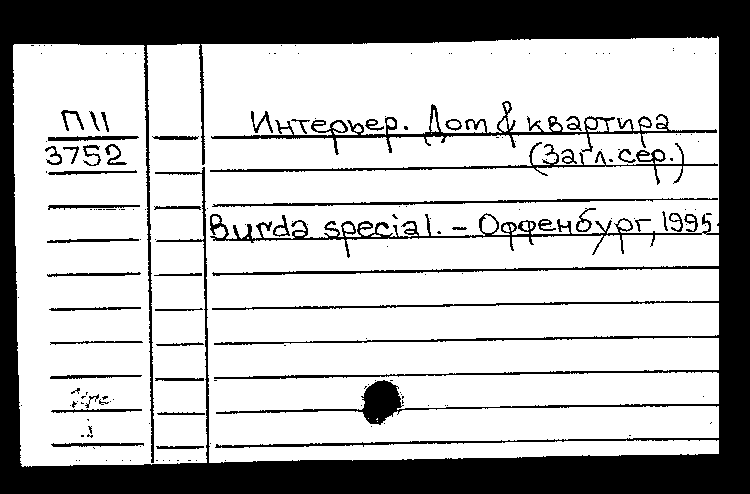 П II
3752
Интерьер. Дом & квартира
(Загл. сер.)
Burda special. – Оффенбург, 1995-